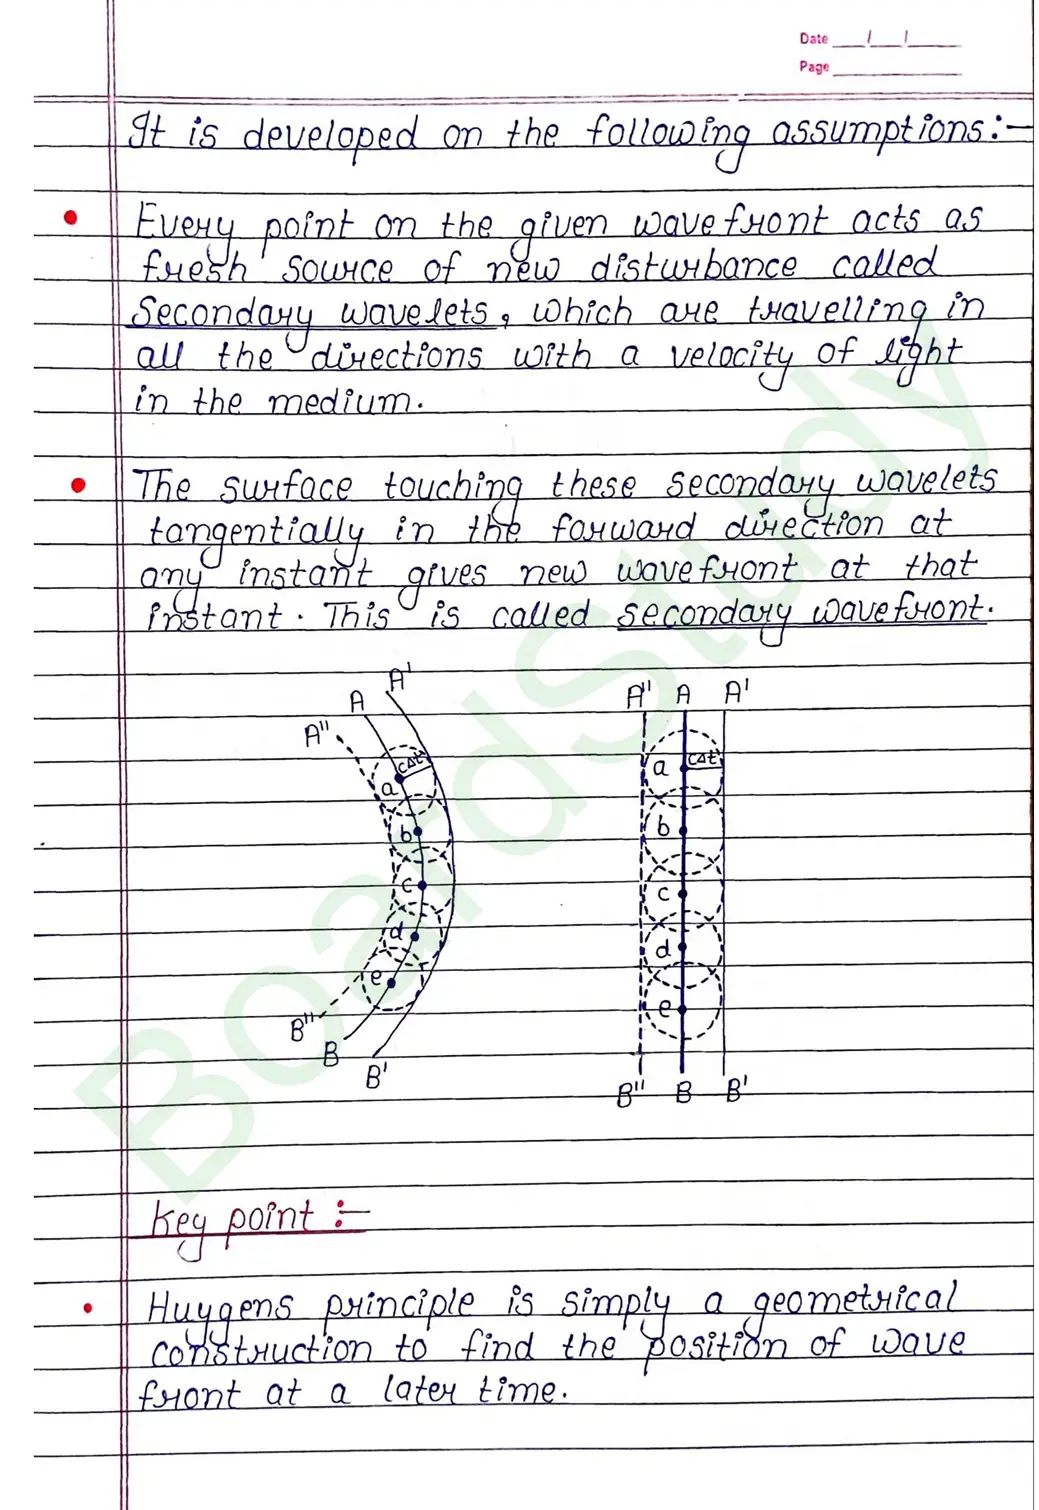 Date __/__/__
Page ______
It is developed on the following assumptions:-
• Every point on the given wavefront acts as
fresh source of new disturbance called
secondary wavelets, which are travelling in
all the directions with a velocity of light
in the medium.
• The surface touching these secondary wavelets
tangentially in the forward direction at
any instant gives new wavefront at that
instant. This is called secondary wavefront.
A'
A
A"
cΔt
a
b
c
d
e
B"
B
B'
A" A A'
a cΔt
b
c
d
e
B" B B'
Key point :-
• Huygens principle is simply a geometrical
construction to find the position of wave
front at a later time.
BoardStudy